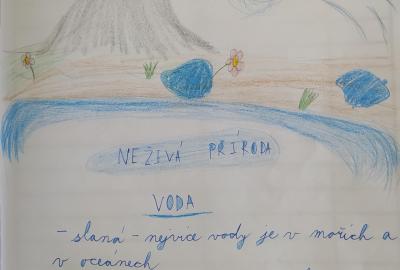 NEŽIVÁ PŘÍRODA
VODA
- slaná - nejvíce vody je v mořích a
v oceánech